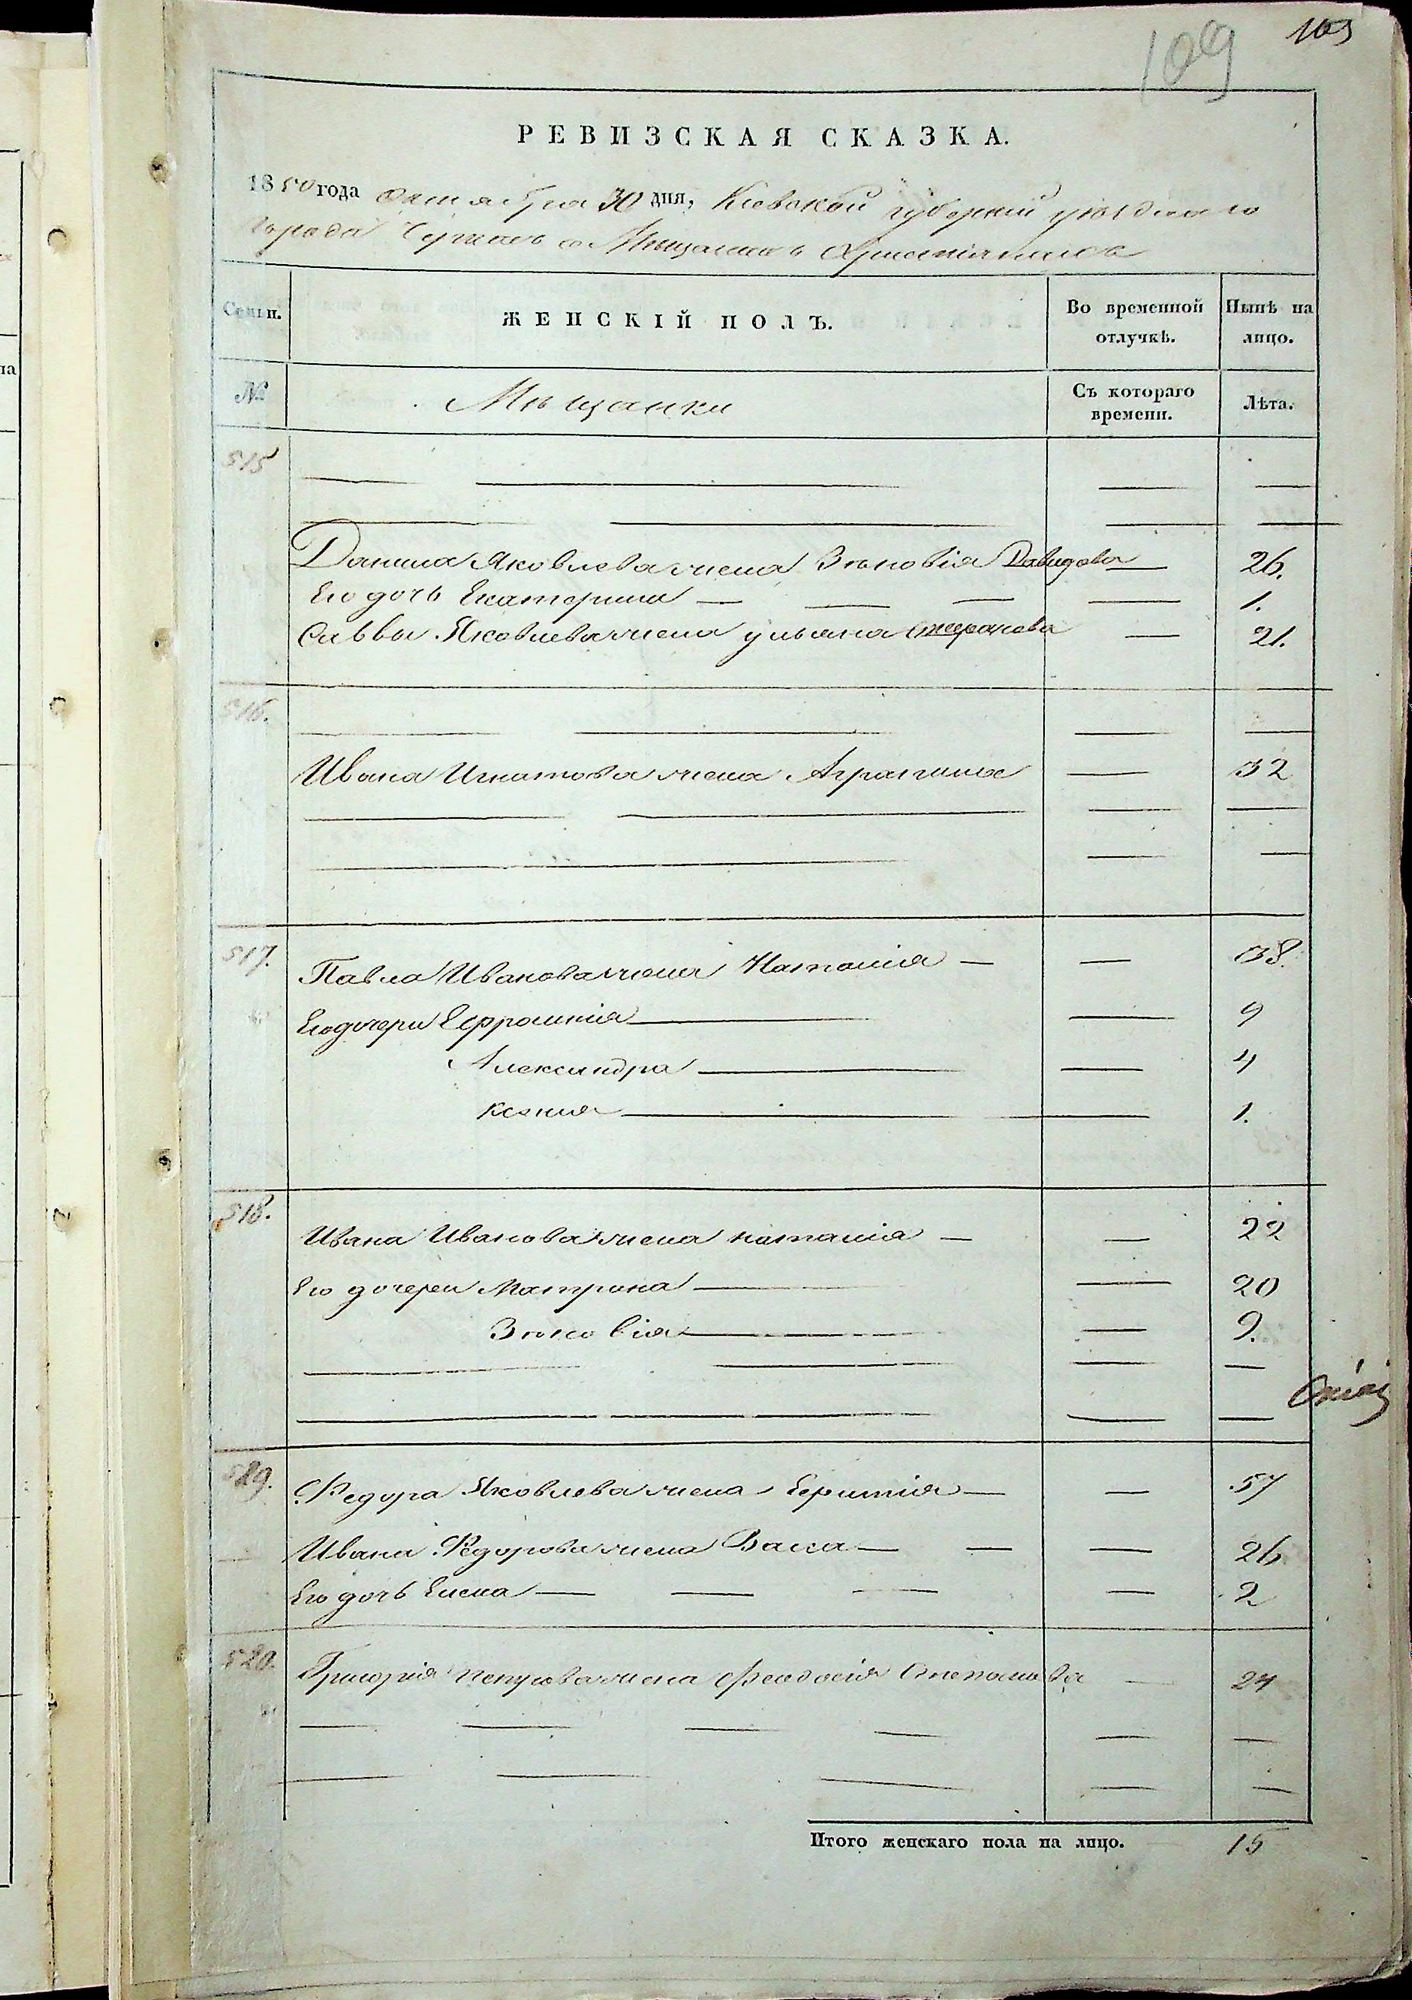 109 103
РЕВИЗСКАЯ СКАЗКА.
1850 года Октября 30 дня, Кіевской губерніи уезднаго
города Черкасъ о Мещанахъ Християнахъ
Семьи. ЖЕНСКІЙ ПОЛЪ. Во временной отлучкѣ. Нынѣ на лицо.
№ Мещанки Съ котораго времени. Лѣта.
515
Данила Яковлева жена Зѣновія Давидова 26.
Его дочь Екатерина 1.
Саввы Яковлева жена ульяна 21.
516.
Ивана Игнатова жена Аграпина 32
517.
Павла Иванова жена Наталія 38.
Его дочери Ефросинія 9
Александра 4
Ксения 1.
518.
Ивана Иванова жена наталия 22
Его дочери Матрона 20
Зѣновія 9.
519.
Федора Яковлева жена 57
Ивана Федорова жена Васса 26
Его дочь Елена 2
520.
Григорія жена Феодосія Степанова 24
Итого женскаго пола на лицо. 15